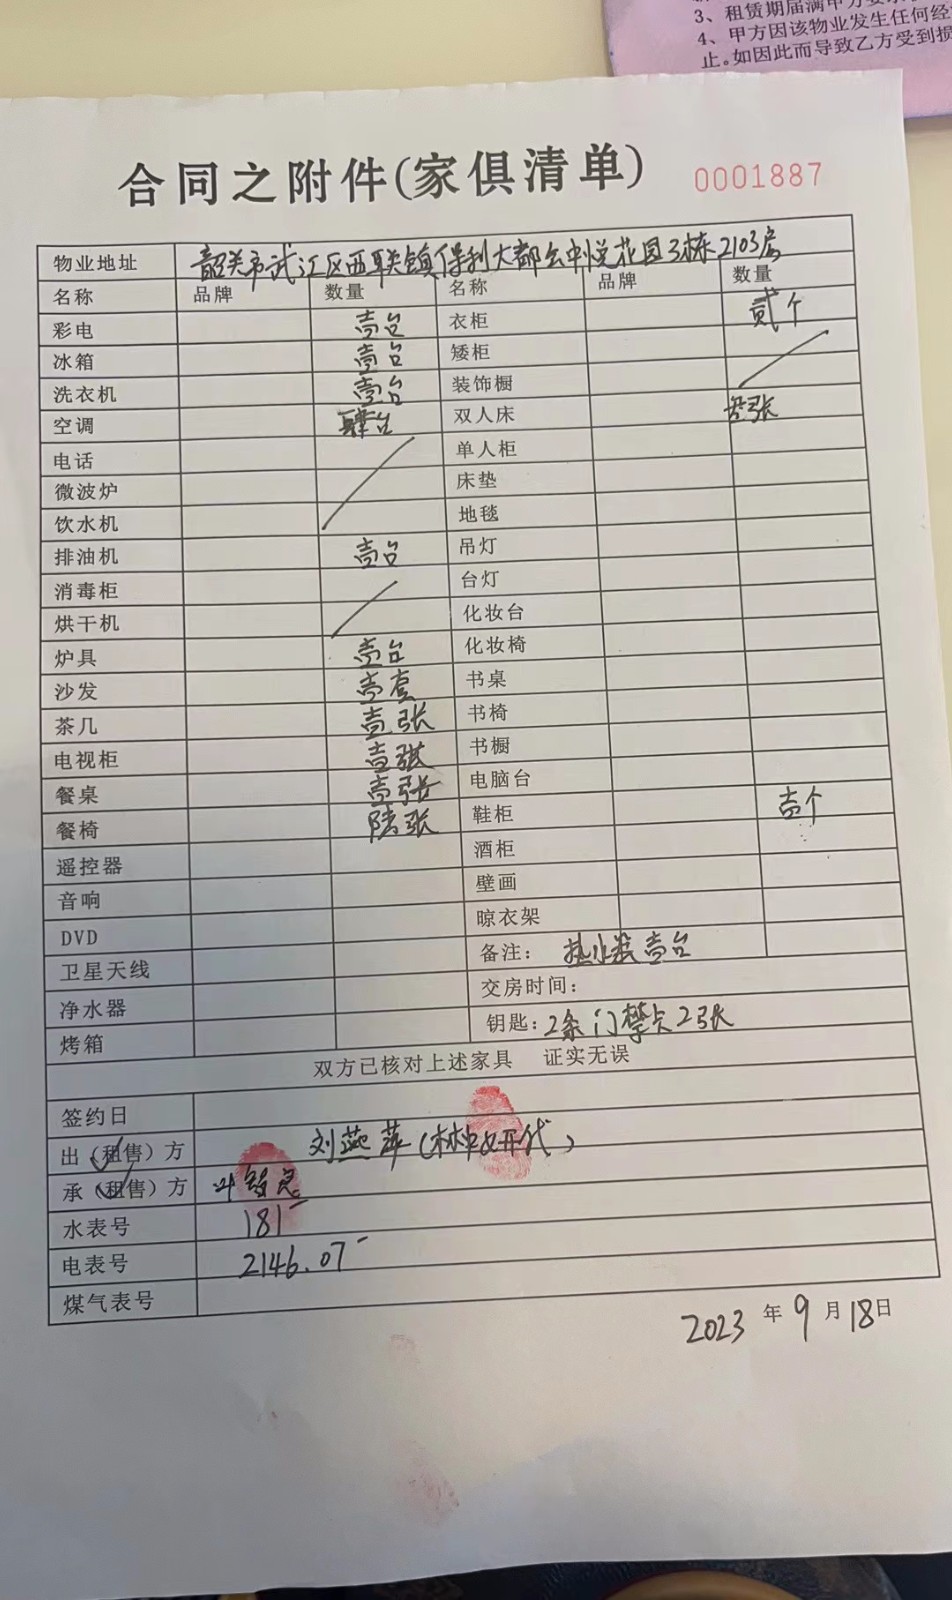 3、租赁期届满
4、甲方因该物业发生任何经
止。如因此而导致乙方受到损
合同之附件(家俱清单) 0001887
物业地址 韶关市武江区西联镇保利大都会中悦花园3栋2103房
名称 品牌 数量 名称 品牌 数量
彩电 壹台 衣柜 贰个
冰箱 壹台 矮柜
洗衣机 壹台 装饰橱
空调 肆台 双人床 叁张
电话 单人柜
微波炉 床垫
饮水机 地毯
排油机 壹台 吊灯
消毒柜 台灯
烘干机 化妆台
炉具 壹台 化妆椅
沙发 壹套 书桌
茶几 壹张 书椅
电视柜 壹张 书橱
餐桌 壹张 电脑台
餐椅 陆张 鞋柜 壹个
遥控器 酒柜
音响 壁画
DVD 晾衣架
卫星天线 备注: 热水器壹台
净水器 交房时间:
烤箱 钥匙: 2条门禁卡2张
双方已核对上述家具 证实无误
签约日
出(租售)方 刘燕萍(代)
承(租售)方 叶
水表号 181
电表号 2146.07
煤气表号
2023年9月18日